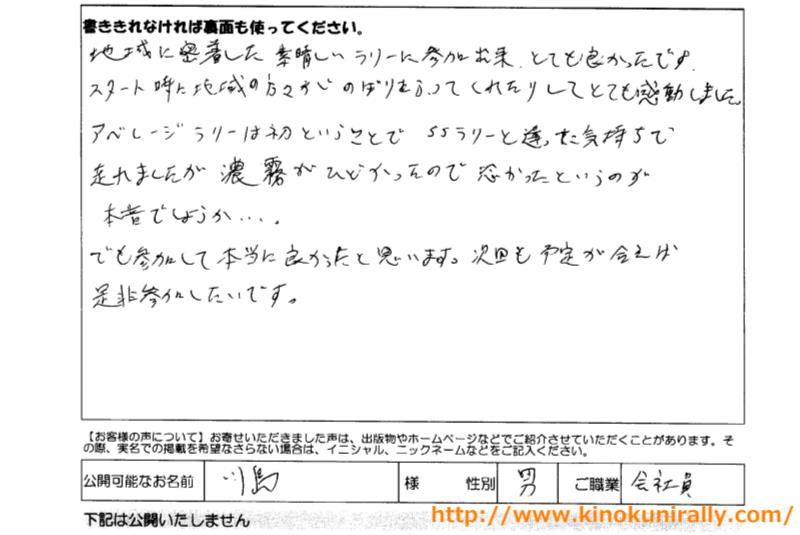 書ききれなければ裏面も使ってください。
地域に密着した素晴しいラリーに参加出来、とても良かったです。
スタート時に地域の方々がのぼりをふってくれたりしてとても感動しました
アベレージラリーは初ということでSSラリーと違った気持ちで
走れましたが濃霧がひどかったので恐かったというのが
本音でしょうか・・・。
でも参加して本当に良かったと思います。次回も予定が合えば
是非参加したいです。
【お客様の声について】お寄せいただきました声は、出版物やホームページなどでご紹介させていただくことがあります。そ
の際、実名での掲載を希望なさらない場合は、イニシャル、ニックネームなどをご記入ください。
公開可能なお名前 川島 様 性別 男 ご職業 会社員
下記は公開いたしません
http://www.kinokunirally.com/